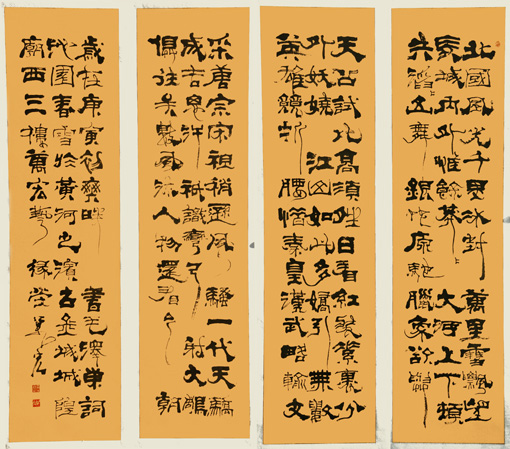 北國風光千里冰封萬里雪飄望
長城內外惟餘莽〻大河上下頓
失滔〻山舞銀蛇原馳臘象欲與
天公試比高須晴日看紅裝素裹分
外妖嬈江山如此多嬌引無數
英雄競折腰惜秦皇漢武略輸文
采唐宗宋祖稍遜風騷一代天驕
成吉思汗祇識彎弓射大鵰
俱往矣數風流人物還看今朝
歲在庚寅初書毛澤東詞
沁園春雪於黃河之濱古金城城隍
廟西三樓萬宏藝緣堂萬宏